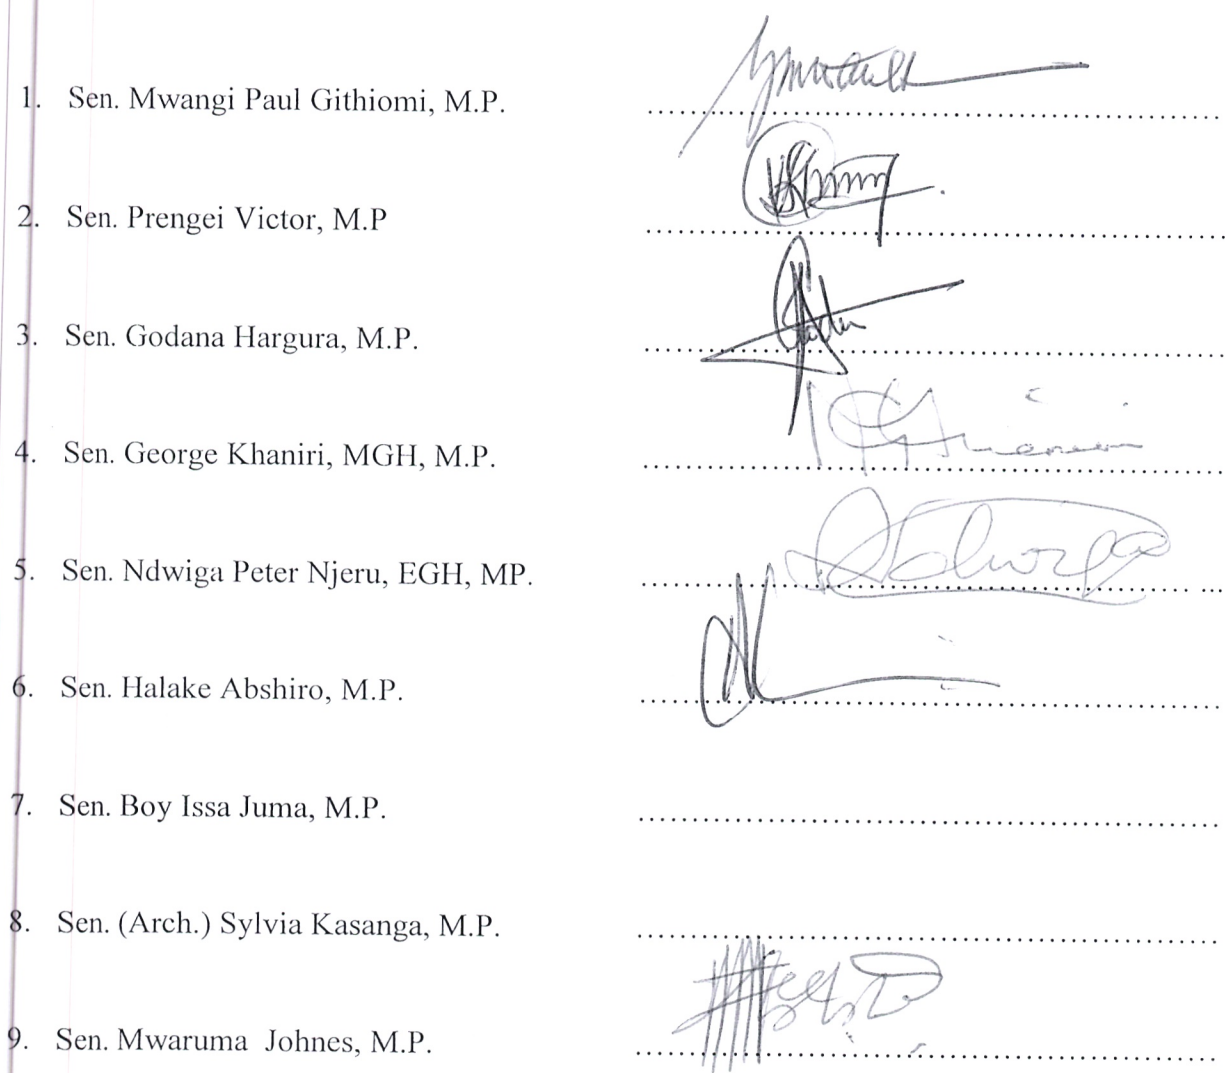 1. Sen. Mwangi Paul Githiomi, M.P. ..........
2. Sen. Prengei Victor, M.P ..........
3. Sen. Godana Hargura, M.P. ..........
4. Sen. George Khaniri, MGH, M.P. ..........
5. Sen. Ndwiga Peter Njeru, EGH, MP. ..........
6. Sen. Halake Abshiro, M.P. ..........
7. Sen. Boy Issa Juma, M.P. ..........
8. Sen. (Arch.) Sylvia Kasanga, M.P. ..........
9. Sen. Mwaruma Johnes, M.P. ..........